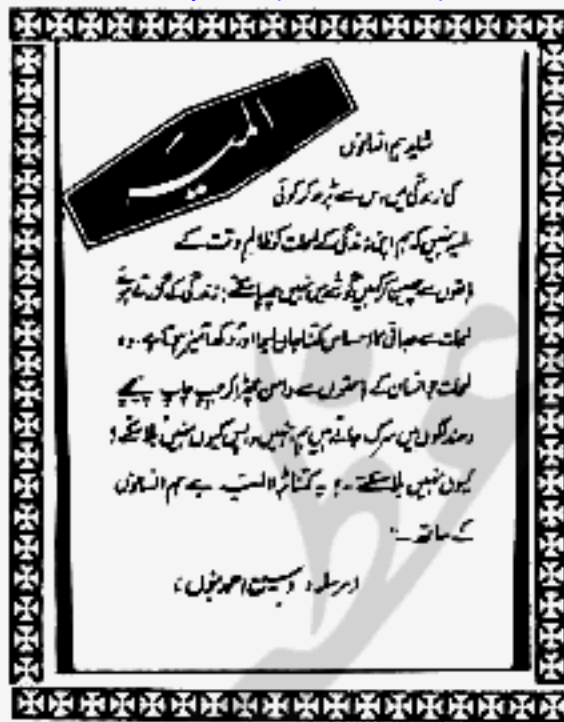 المیہ
شاید ہم انسانوں
کی زندگی میں اس سے بڑھ کر کوئی
المیہ نہیں کہ ہم اپنی زندگی کے لمحات کو ظالم وقت کے
ہاتھوں سے چھین کر کہیں گوشے میں نہیں چھپا سکتے؛ زندگی کے گزرتے ہوئے
لمحات سے جدائی کا احساس کتنا جان لیوا اور دکھ آمیز ہوتا ہے۔ وہ
لمحات جو انسان کے ہاتھوں سے دامن چھڑا کر چپ چاپ پیچھے
دھندلکوں میں سرک جاتے ہیں ہم انہیں واپس کیوں نہیں بلا سکتے؟
کیوں نہیں بلا سکتے۔ یہ کتنا بڑا المیہ ہے ہم انسانوں
کے ساتھ۔
(مرسلہ: احمد